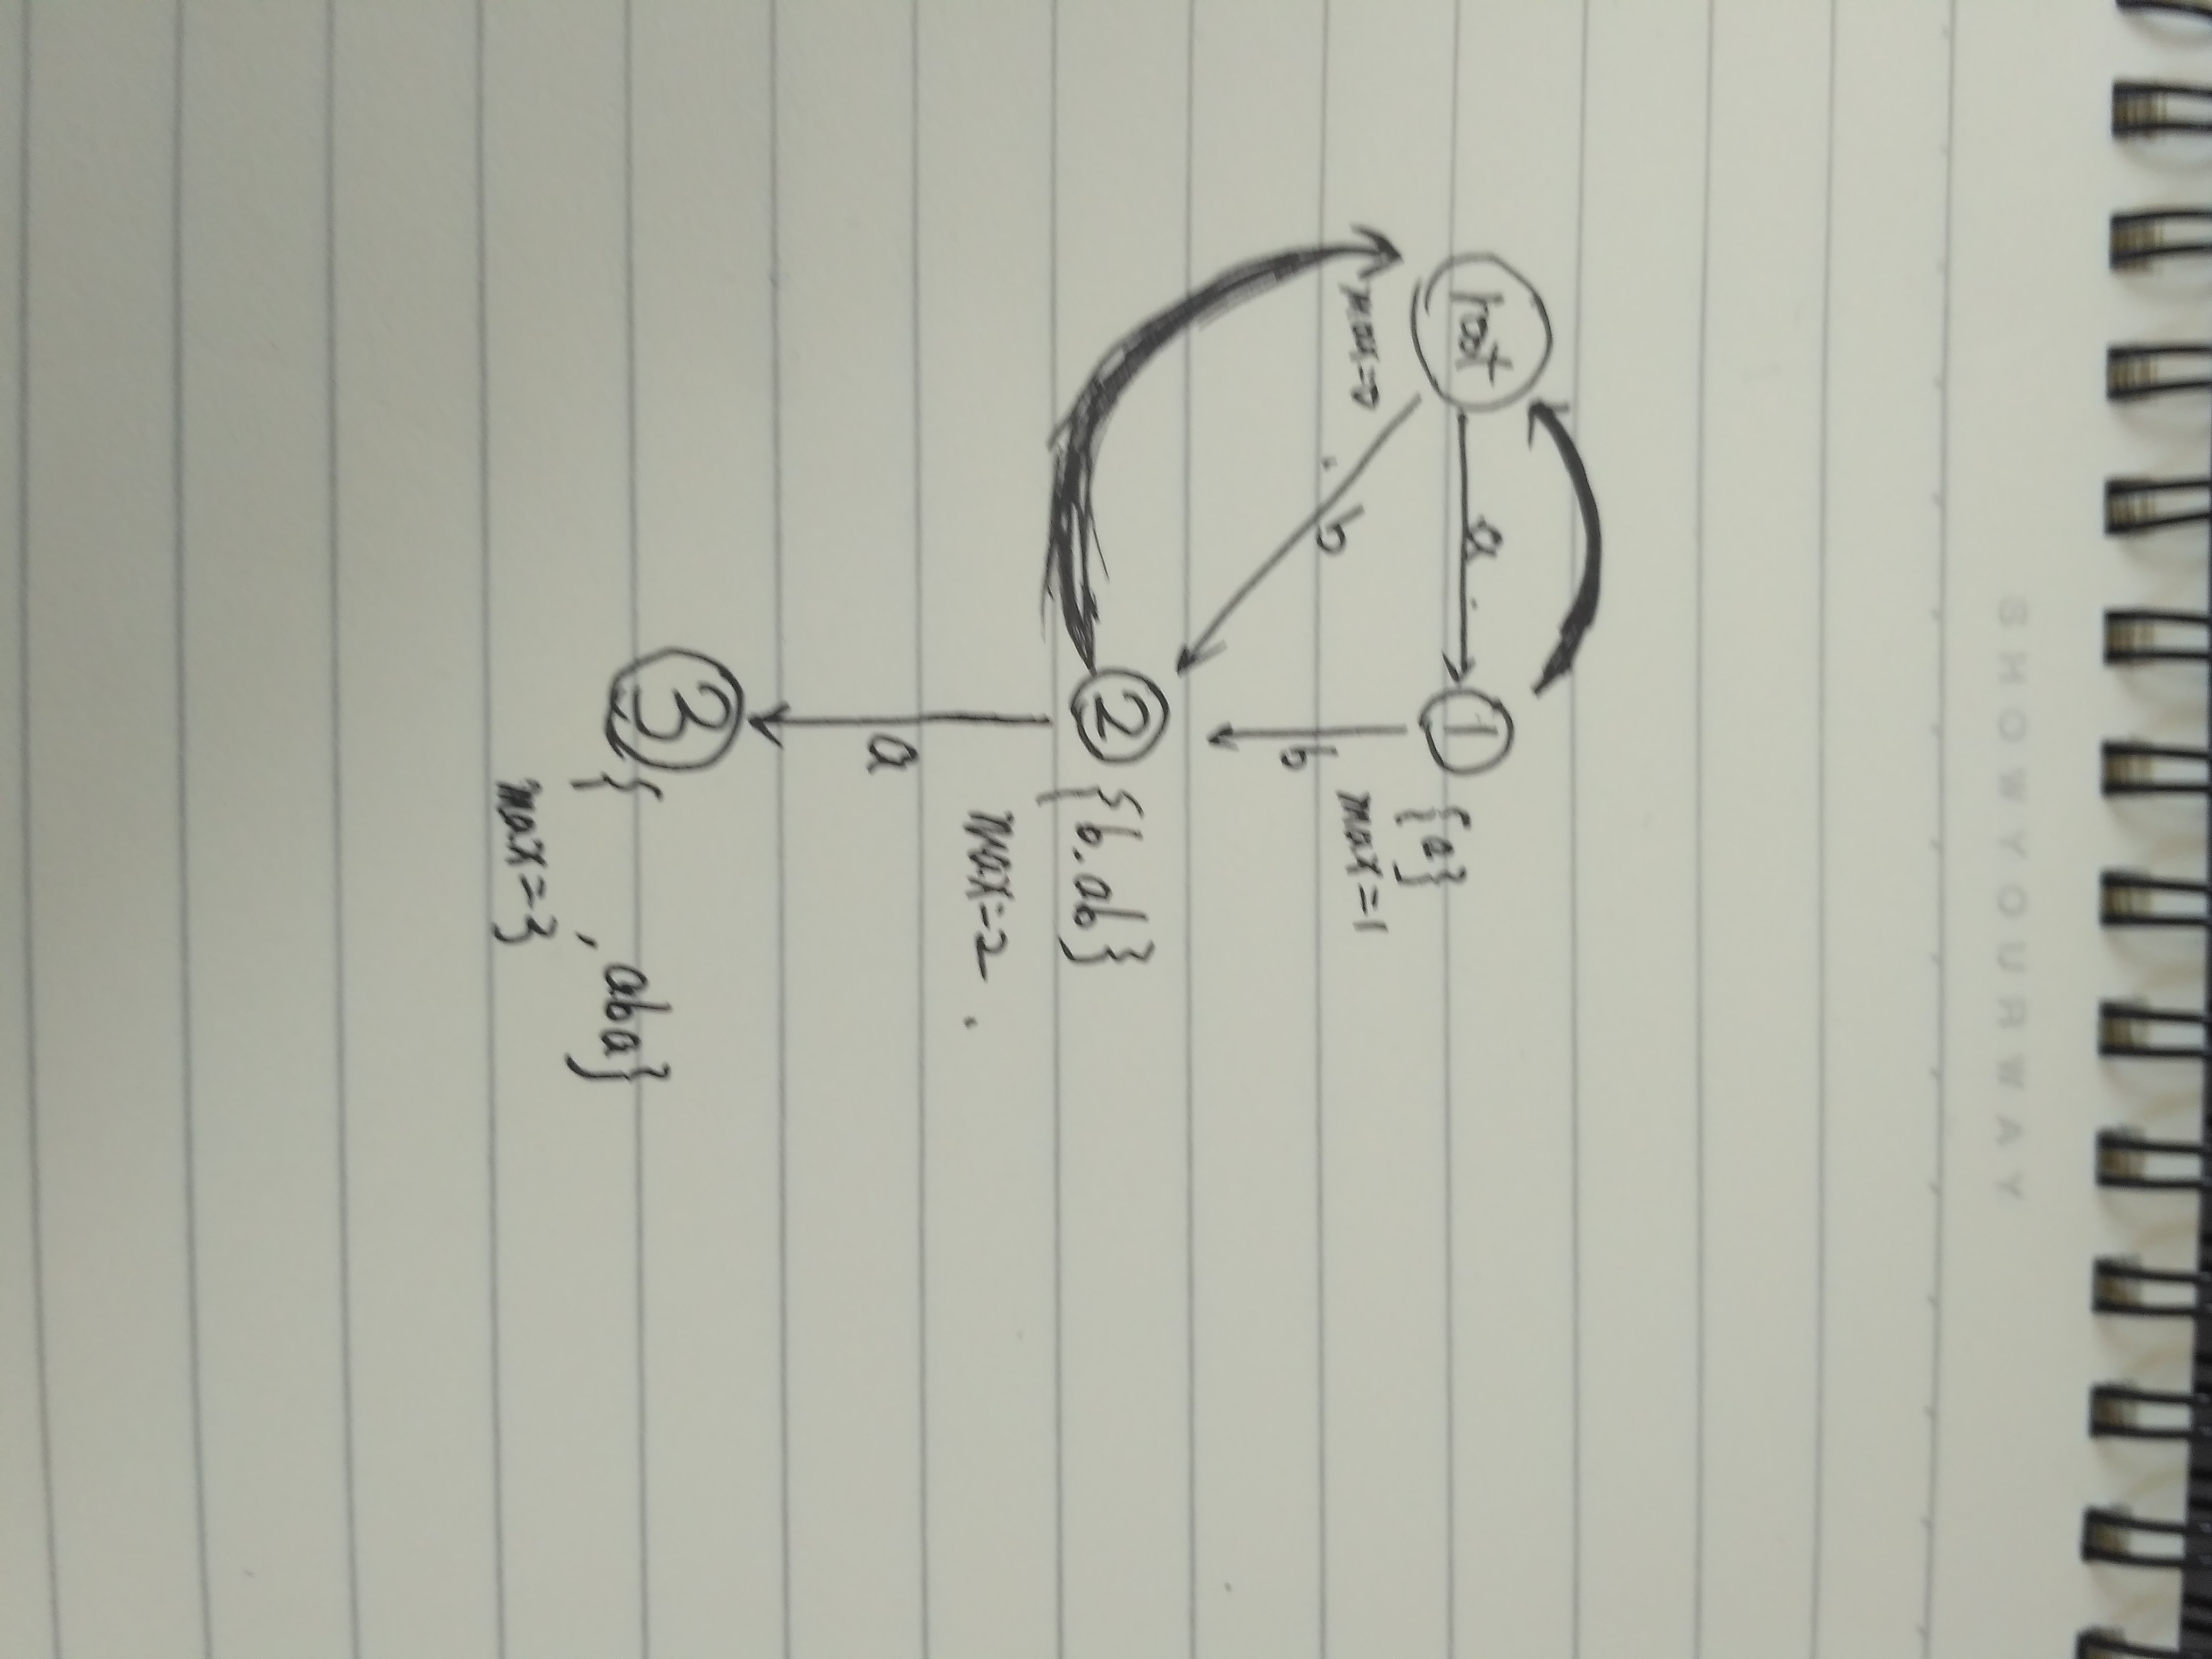 SHOWYOURWAY
root
a
1
{a}
max=1
max=0
b
b
2
{b.ab}
max=2
a
3
{ , aba}
max=3